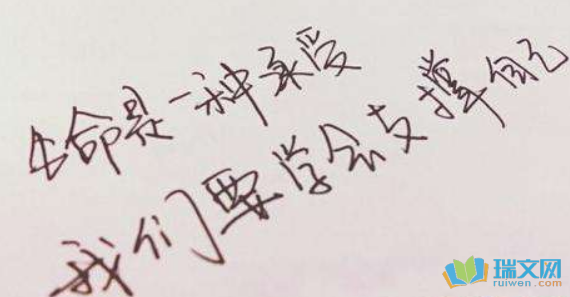 生命是一种承受
我们要学会支撑自己
瑞文网
ruiwen.com